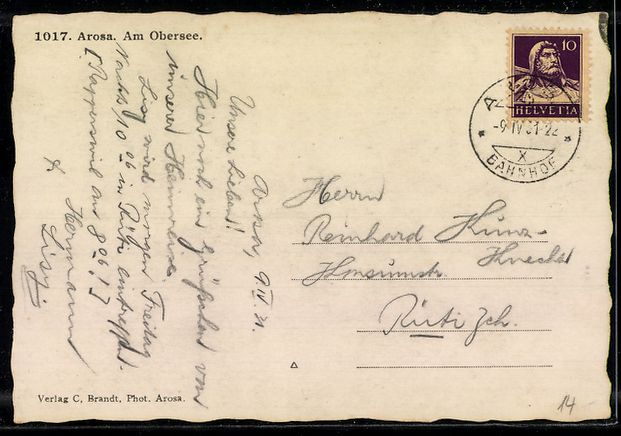 1017. Arosa. Am Obersee.
10
HELVETIA
-9.IV.31-22
X
BAHNHOF
Arosa, 9.IV.31.
Unsere Lieben!
Hier noch ein Grüsschen von
unserer Heimreise
Lisy wird morgen Freitag
Nachts 10 06 in Rüti eintreffen.
[Rapperswil aus 9 06!]
Hermann
& Lisy
Herrn
Reinhard Kunz-
Knecht
Konsumstr.
Rüti Zch.
Verlag C. Brandt, Phot. Arosa.
14.-